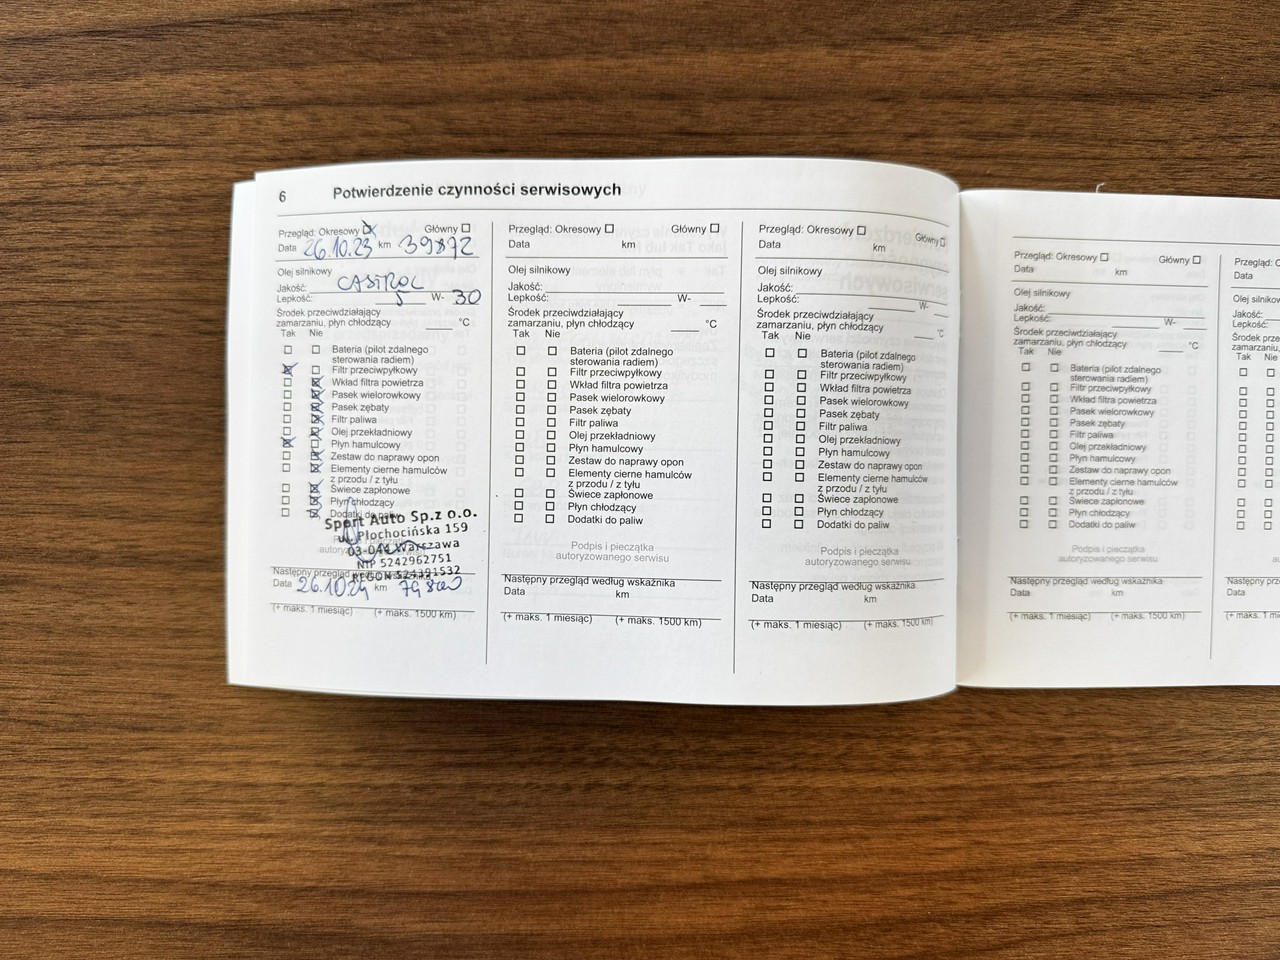 6 Potwierdzenie czynności serwisowych
Przegląd: Okresowy Główny
Data 26.10.23 km 39872
Olej silnikowy
Jakość: CASTROL
Lepkość: 5 W- 30
Środek przeciwdziałający
zamarzaniu, płyn chłodzący °C
Tak Nie
Bateria (pilot zdalnego
sterowania radiem)
Filtr przeciwpyłkowy
Wkład filtra powietrza
Pasek wielorowkowy
Pasek zębaty
Filtr paliwa
Olej przekładniowy
Płyn hamulcowy
Zestaw do naprawy opon
Elementy cierne hamulców
z przodu / z tyłu
Świece zapłonowe
Płyn chłodzący
Dodatki do paliw
Sport Auto Sp.z o.o.
ul. Płochocińska 159
03-044 Warszawa
NIP 5242962751
REGON 524391532
Następny przegląd według wskaźnika
Data 26.10.24 km 79800
(+ maks. 1 miesiąc) (+ maks. 1500 km)
Przegląd: Okresowy Główny
Data km
Olej silnikowy
Jakość:
Lepkość: W-
Środek przeciwdziałający
zamarzaniu, płyn chłodzący °C
Tak Nie
Bateria (pilot zdalnego
sterowania radiem)
Filtr przeciwpyłkowy
Wkład filtra powietrza
Pasek wielorowkowy
Pasek zębaty
Filtr paliwa
Olej przekładniowy
Płyn hamulcowy
Zestaw do naprawy opon
Elementy cierne hamulców
z przodu / z tyłu
Świece zapłonowe
Płyn chłodzący
Dodatki do paliw
Podpis i pieczątka
autoryzowanego serwisu
Następny przegląd według wskaźnika
Data km
(+ maks. 1 miesiąc) (+ maks. 1500 km)
Przegląd: Okresowy Główny
Data km
Olej silnikowy
Jakość:
Lepkość: W-
Środek przeciwdziałający
zamarzaniu, płyn chłodzący °C
Tak Nie
Bateria (pilot zdalnego
sterowania radiem)
Filtr przeciwpyłkowy
Wkład filtra powietrza
Pasek wielorowkowy
Pasek zębaty
Filtr paliwa
Olej przekładniowy
Płyn hamulcowy
Zestaw do naprawy opon
Elementy cierne hamulców
z przodu / z tyłu
Świece zapłonowe
Płyn chłodzący
Dodatki do paliw
Podpis i pieczątka
autoryzowanego serwisu
Następny przegląd według wskaźnika
Data km
(+ maks. 1 miesiąc) (+ maks. 1500 km)
Przegląd: Okresowy Główny
Data km
Olej silnikowy
Jakość:
Lepkość: W-
Środek przeciwdziałający
zamarzaniu, płyn chłodzący °C
Tak Nie
Bateria (pilot zdalnego
sterowania radiem)
Filtr przeciwpyłkowy
Wkład filtra powietrza
Pasek wielorowkowy
Pasek zębaty
Filtr paliwa
Olej przekładniowy
Płyn hamulcowy
Zestaw do naprawy opon
Elementy cierne hamulców
z przodu / z tyłu
Świece zapłonowe
Płyn chłodzący
Dodatki do paliw
Podpis i pieczątka
autoryzowanego serwisu
Następny przegląd według wskaźnika
Data km
(+ maks. 1 miesiąc) (+ maks. 1500 km)
Przegląd:
Data
Olej
Jakość:
Lepkość:
Środek
zamarzaniu,
Tak Nie
Data
(+ maks. 1